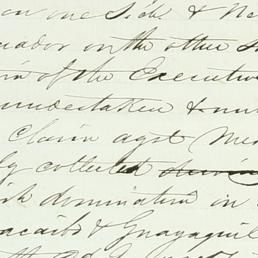 on one Side & Ne
uador on the other s
in of the Executive
undertaken &
Claim agst Me
ly collected
ish domination in
acaibo & Guayaquil